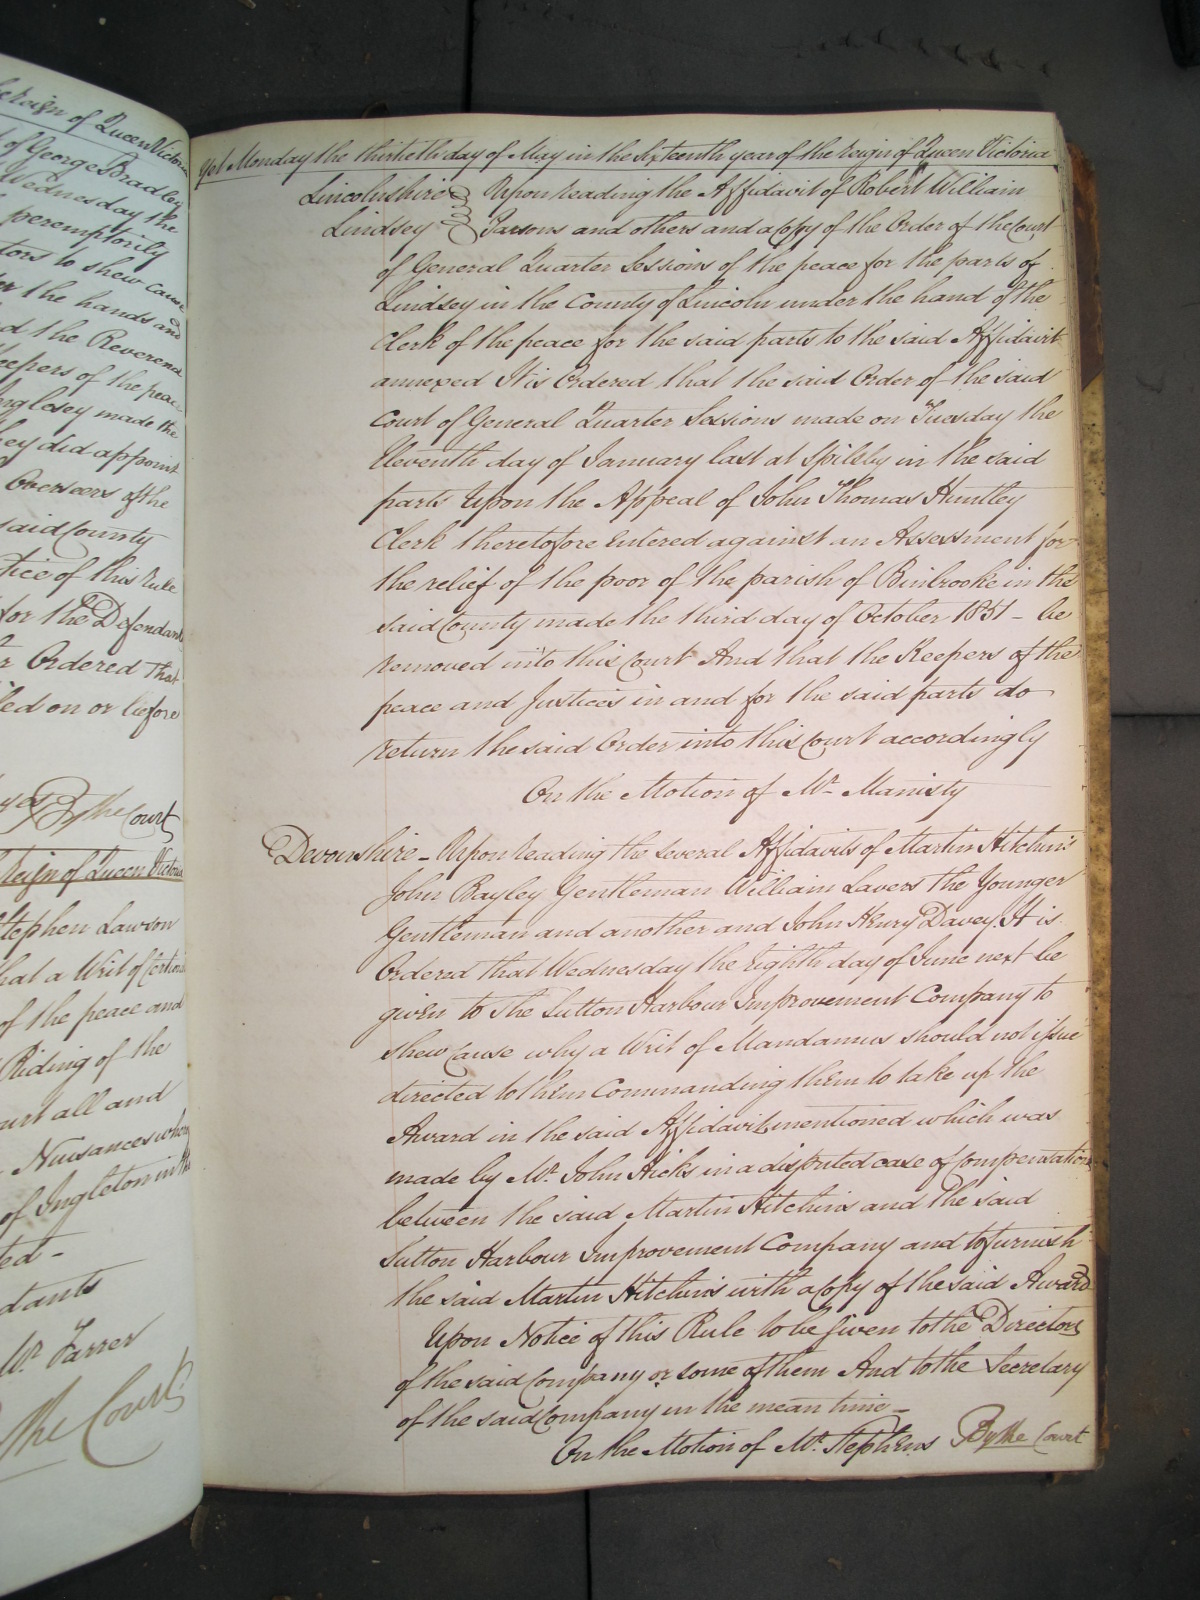 Reign of Queen Victoria
of George Bradley
Wednesday the
peremptorily
tors to shew cause
the hands and
d the Reverend
Keepers of the peace
nglesey made the
ey did appoint
Overseers of the
said County
tice of this Rule
for the Defendants
r Ordered that
led on or before
By the Court
Reign of Queen Victoria
Stephen Lawson
hat a Writ of Certiorari
of the peace and
Riding of the
all and
Nuisances whereof
of Ingleton in the
ted -
dants
Mr Farrer
the Court
Yet Monday the thirtieth day of May in the sixteenth year of the Reign of Queen Victoria
Lincolnshire Upon reading the Affidavit of Robert William
Lindsey Parsons and others and a Copy of the Order of the Court
of General Quarter Sessions of the peace for the parts of
Lindsey in the County of Lincoln under the hand of the
Clerk of the peace for the said parts to the said Affidavit
annexed It is Ordered that the said Order of the said
Court of General Quarter Sessions made on Tuesday the
Eleventh day of January last at Spilsby in the said
parts Upon the Appeal of John Thomas Huntley
Clerk theretofore Entered against an Assessment for
the relief of the poor of the parish of Binbrooke in the
said County made the third day of October 1851 - be
removed into this Court And that the Keepers of the
peace and Justices in and for the said parts do
return the said Order into this Court accordingly
On the Motion of Mr Manisty
Devonshire - Upon reading the several Affidavits of Martin Hitchins
John Bayley Gentleman William Lavers the Younger
Gentleman and another and John Henry Davey. It is
Ordered that Wednesday the Eighth day of June next be
given to The Sutton Harbour Improvement Company to
shew Cause why a Writ of Mandamus should not issue
directed to them Commanding them to take up the
Award in the said Affidavit mentioned which was
made by Mr John Hicks in a disputed case of Compensation
between the said Martin Hitchins and the said
Sutton Harbour Improvement Company and to furnish
the said Martin Hitchins with a Copy of the said Award
Upon Notice of this Rule to be Given to the Directors
of the said Company or some of them And to the Secretary
of the said Company in the mean time -
On the Motion of Mr Stephens By the Court